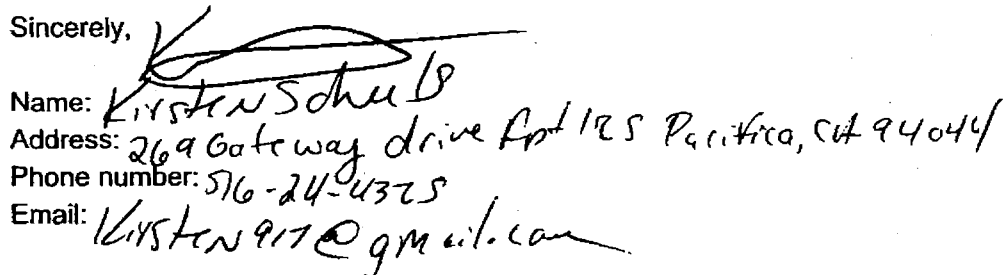 Sincerely,
Name: Kirsten Schulb
Address: 269 Gateway drive Apt 125 Pacifica, CA 94044
Phone number: 516-24-4325
Email: Kirsten917@gmail.com